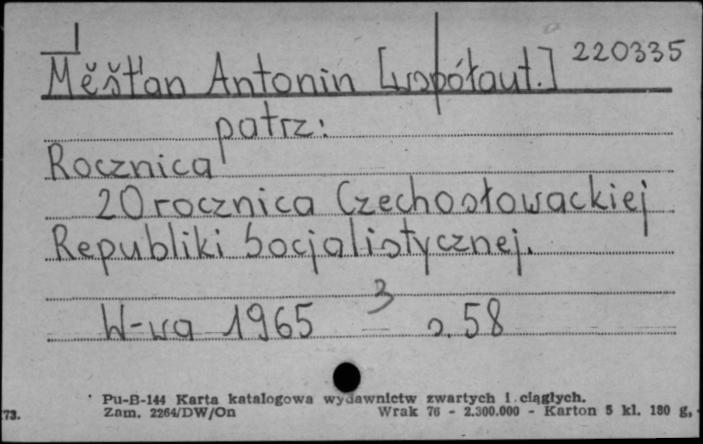 Měšťan Antonin [współaut.] 220335
patrz:
Rocznica
20 rocznica Czechosłowackiej
Republiki Socjalistycznej.
W-wa 1965 3 s. 58
Pu-B-144 Karta katalogowa wydawnictw zwartych i ciągłych.
73. Zam. 2264/DW/On Wrak 76 - 2.300.000 - Karton 5 kl. 180 g,